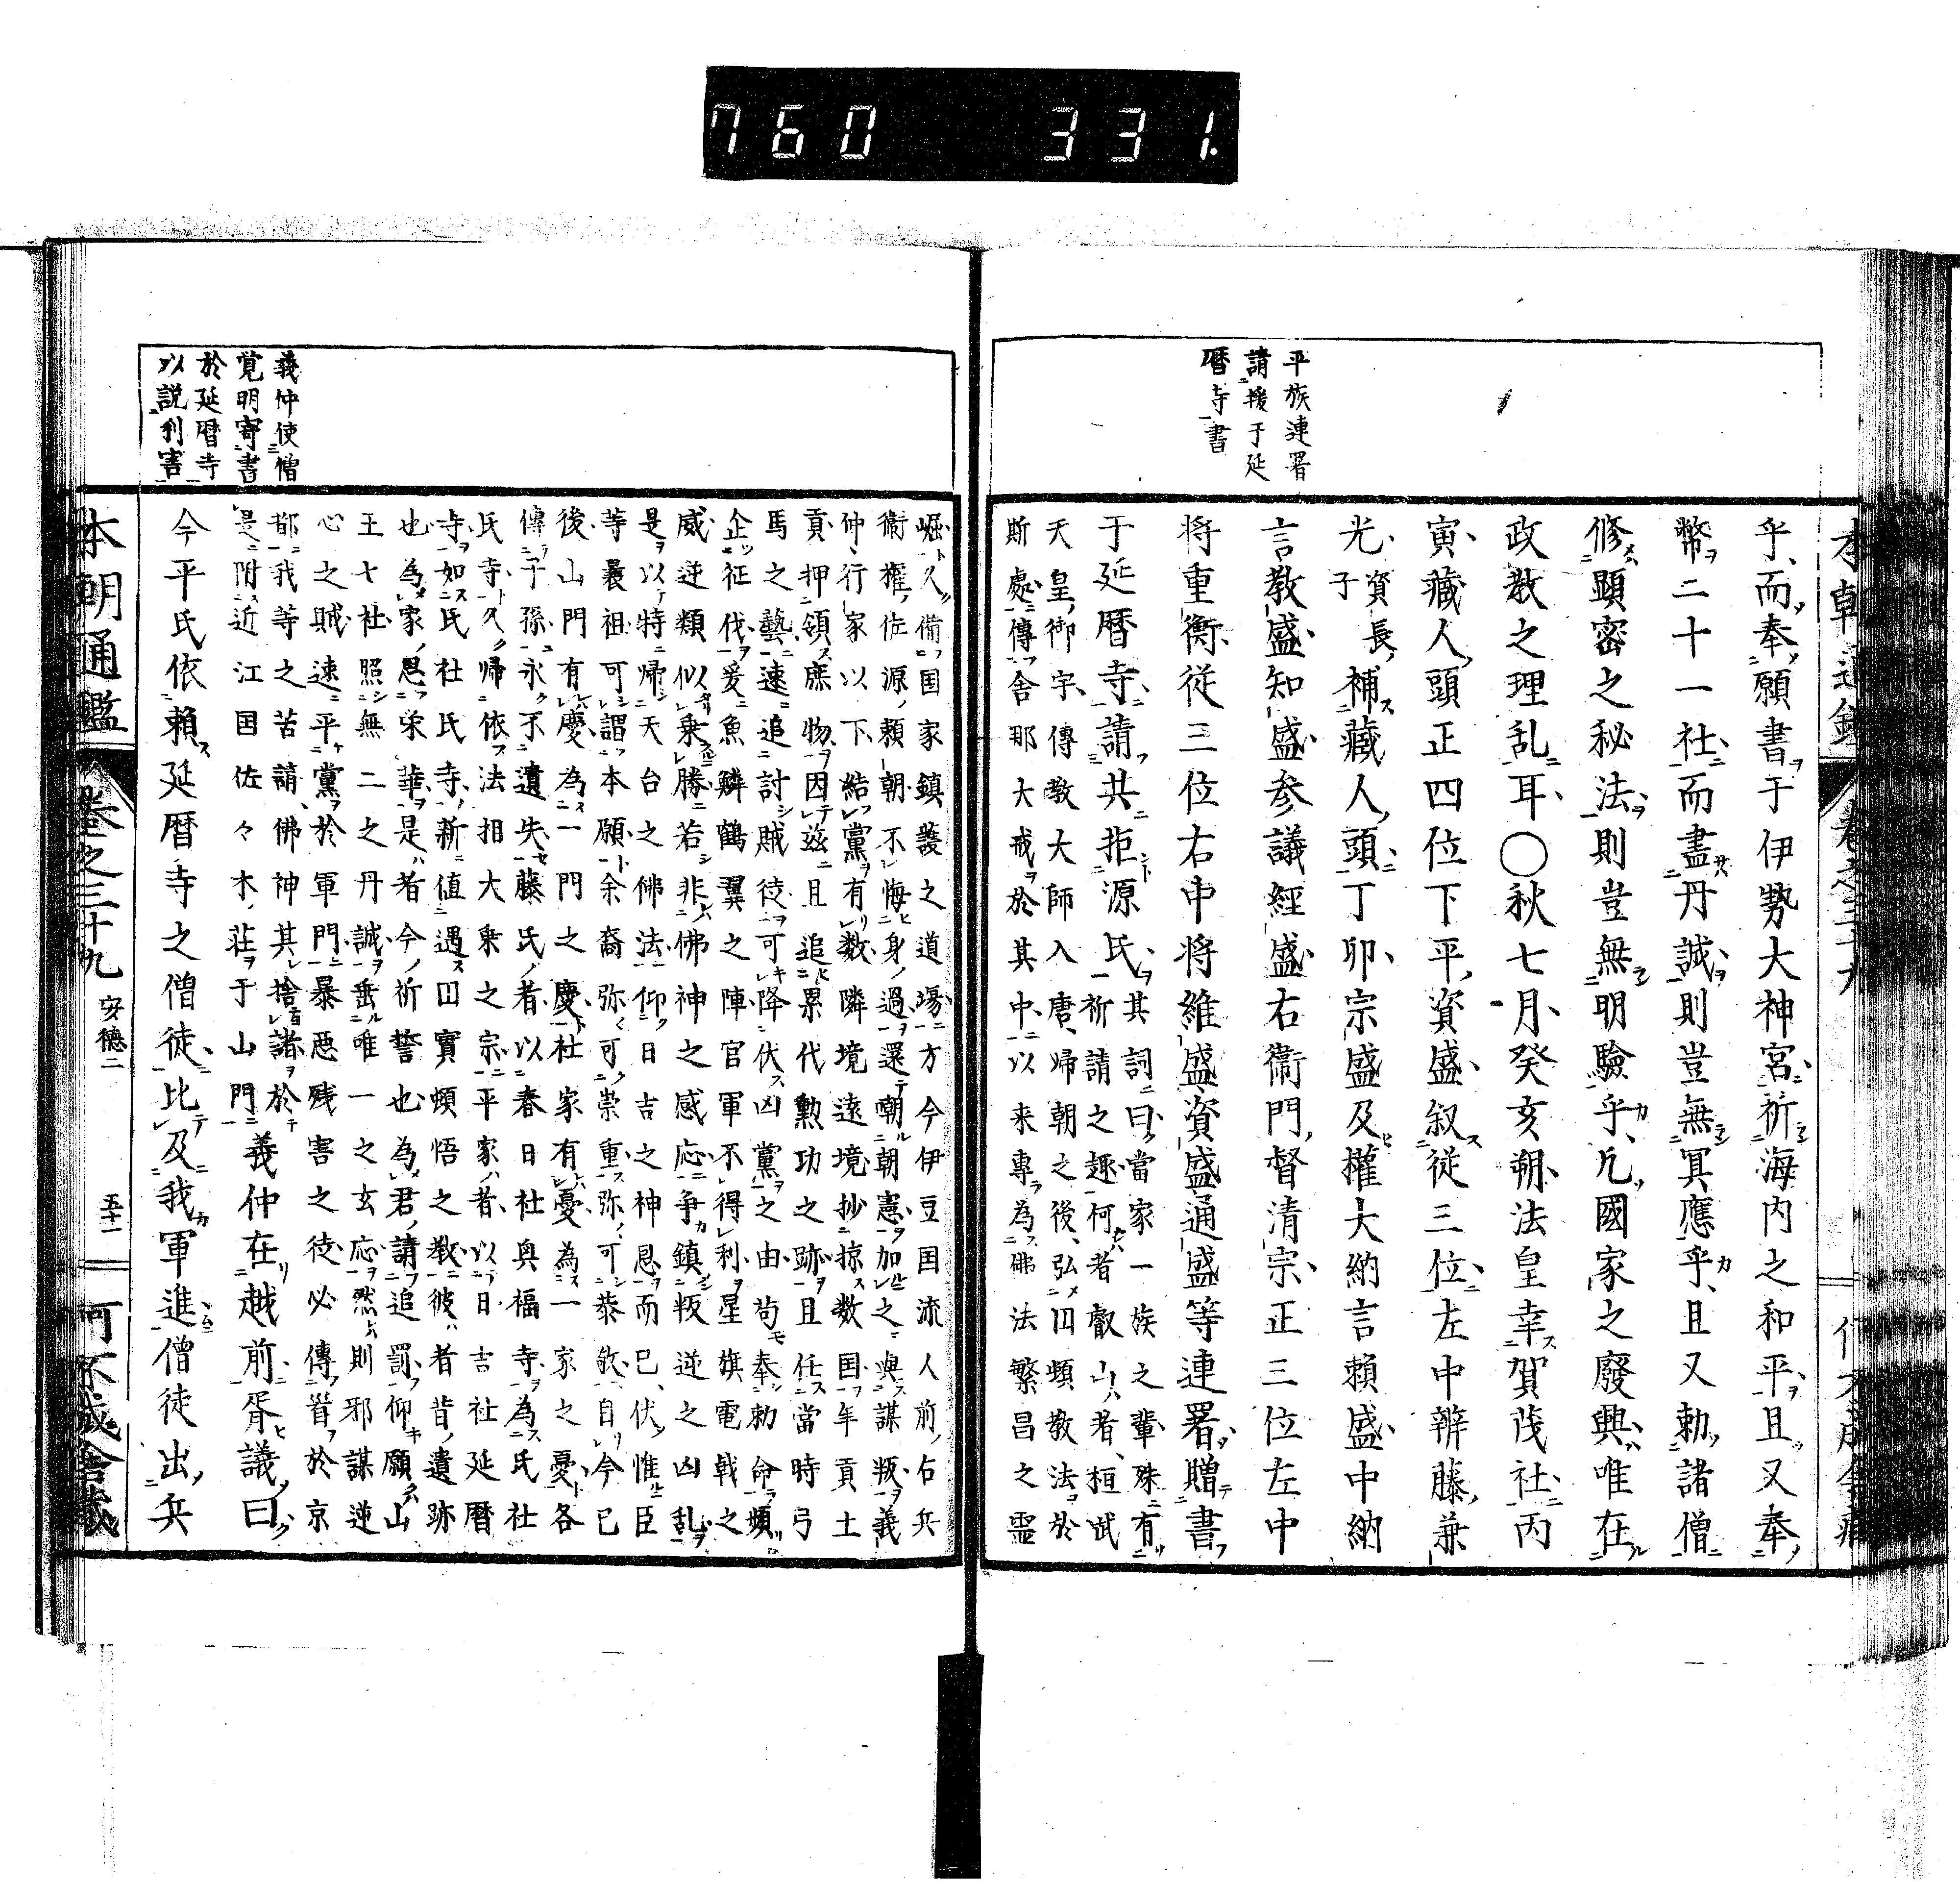 760 331
平族連署
請援于延
暦寺書
乎而奉願書于伊勢大神宮祈海内之和平且又奉
幣二十一社而盡丹誠則豈無冥應乎且又勅諸僧
修顕密之秘法則豈無明驗乎凢國家之廢興唯在
政教之理乱耳○秋七月癸亥朔法皇幸賀茂社丙
寅藏人頭正四位下平資盛叙從三位左中辨藤兼
光資長子補藏人頭丁卯宗盛及權大納言賴盛中納
言教盛知盛参議經盛右衞門督清宗正三位左中
将重衡從三位右中将維盛資盛通盛等連署贈書
于延暦寺請共拒源氏其詞曰當家一族之輩殊有
祈請之趣何者叡山者桓武
天皇御宇傳教大師入唐歸朝之後弘囙頻教法於
斯處傳舍那大戒於其中以来專為佛法繁昌之霊
崛久備国家鎮護之道場方今伊豆国流人前右兵
衞權佐源頼朝不悔身過還嘲朝憲加之與謀叛義
仲行家以下結黨有数隣境遠境抄掠数国年貢土
貢押領庶物因茲且追累代勲功之跡且任當時弓
馬之藝速追討賊徒可降伏凶黨之由苟奉勅命頻
企征伐爰魚鱗鶴翼之陣官軍不得利星旗電戟之
威逆類似乗勝若非佛神之感応争鎮叛逆之凶乱
是以特帰天台之佛法仰日吉之神恩而已伏惟臣
等曩祖可謂本願余裔弥可崇重弥可恭敬自今已
後山門有慶為一門之慶社家有憂為一家之憂各
傳子孫永不遺失藤氏者以春日社興福寺為氏社
氏寺久帰依法相大乗之宗平家者以日吉社延暦
寺如氏社氏寺新値遇囙實頓悟之教彼者昔遺跡
也為家思栄華是者今祈誓也為君請追罰仰願山
王七社照無二之丹誠垂唯一之玄応然則邪謀逆
心之賊速平黨於軍門暴悪残害之徒必傳首於京
都我等之苦請佛神其捨諸於
是附近江国佐々木莊于山門義仲在越前胥議曰
今平氏依賴延暦寺之僧徒比及我軍進僧徒出兵
義仲使僧
覚明寄書
於延暦寺
以説利害
本朝通鑑 巻之三十九 安德二 五十一